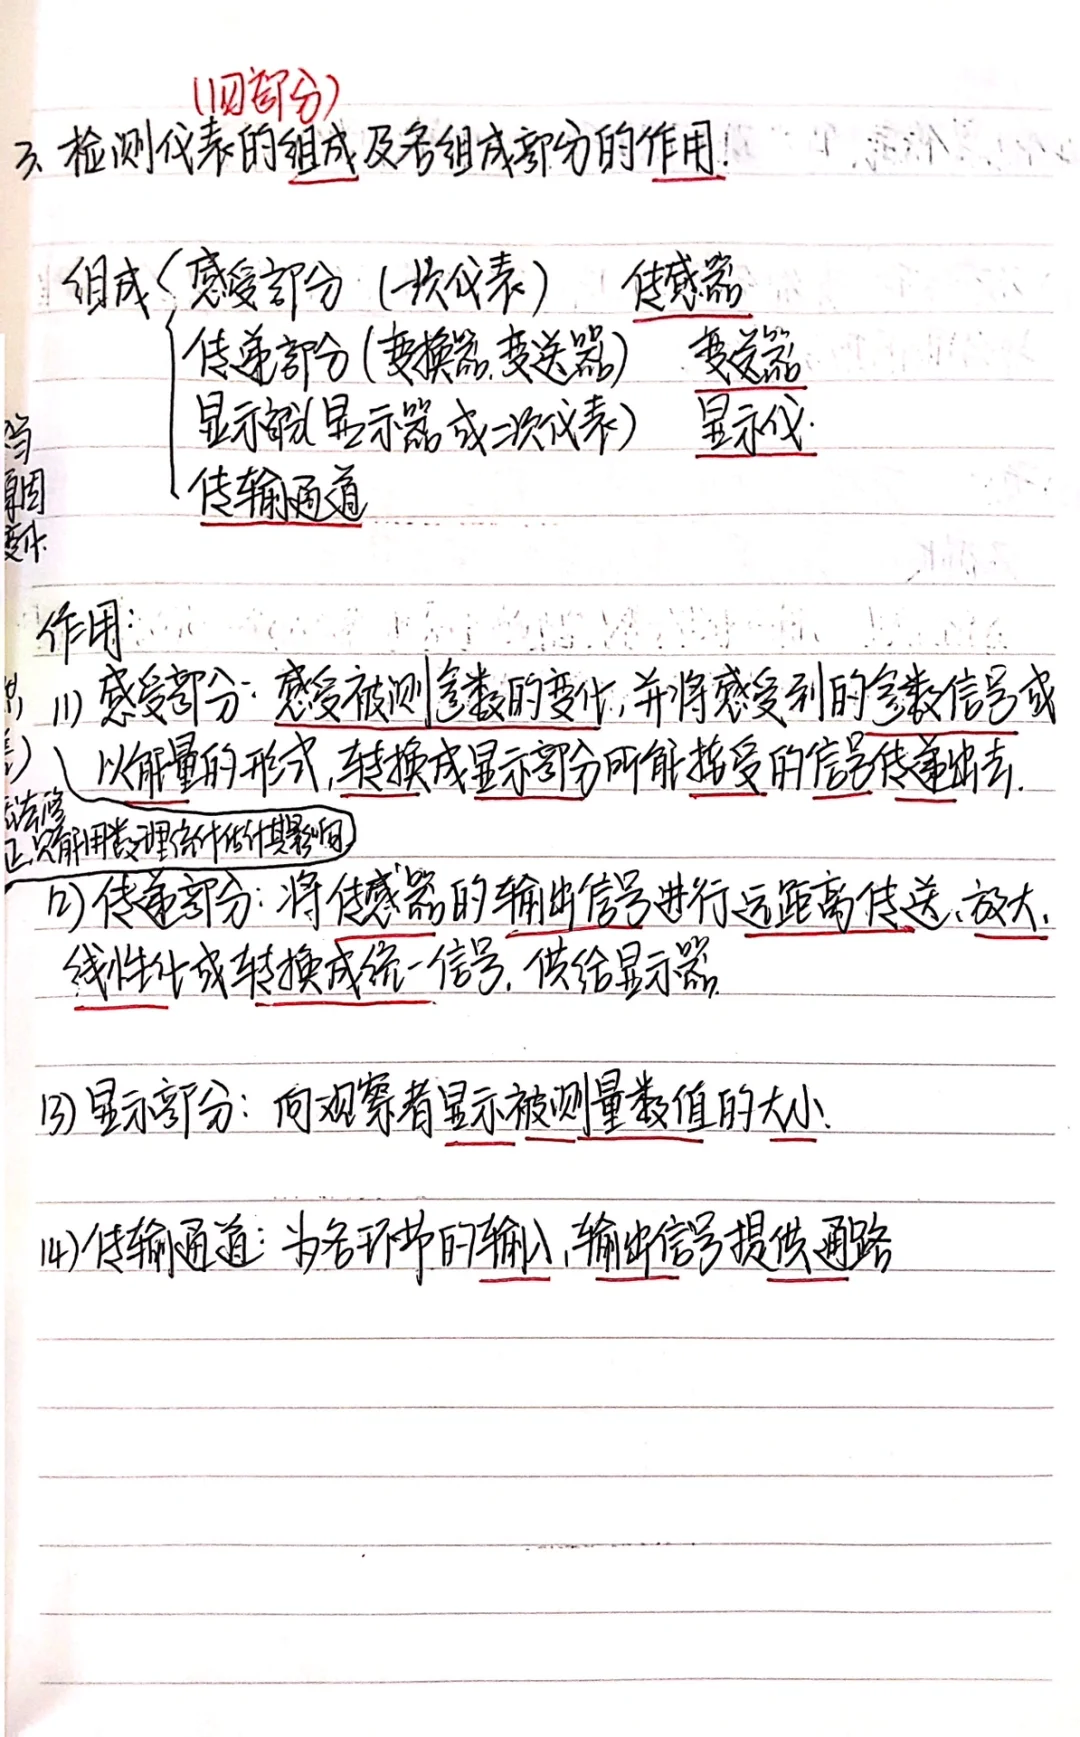 (四部分)
3、检测仪表的组成及各组成部分的作用.
组成 感受部分 (一次仪表) 传感器
传递部分(变换器.变送器) 变送器
显示部分(显示器或二次仪表) 显示仪.
传输通道
当
原因
变化
作用:
(1) 感受部分: 感受被测参数的变化,并将感受到的参数信号或
以能量的形式,转换成显示部分所能接受的信号传递出去.
只能用数理统计估计其影响
(2)传递部分: 将传感器的输出信号进行远距离传送、放大、
线性化或转换成统一信号,供给显示器.
(3)显示部分: 向观察者显示被测量数值的大小.
(4)传输通道: 为各环节的输入、输出信号提供通路